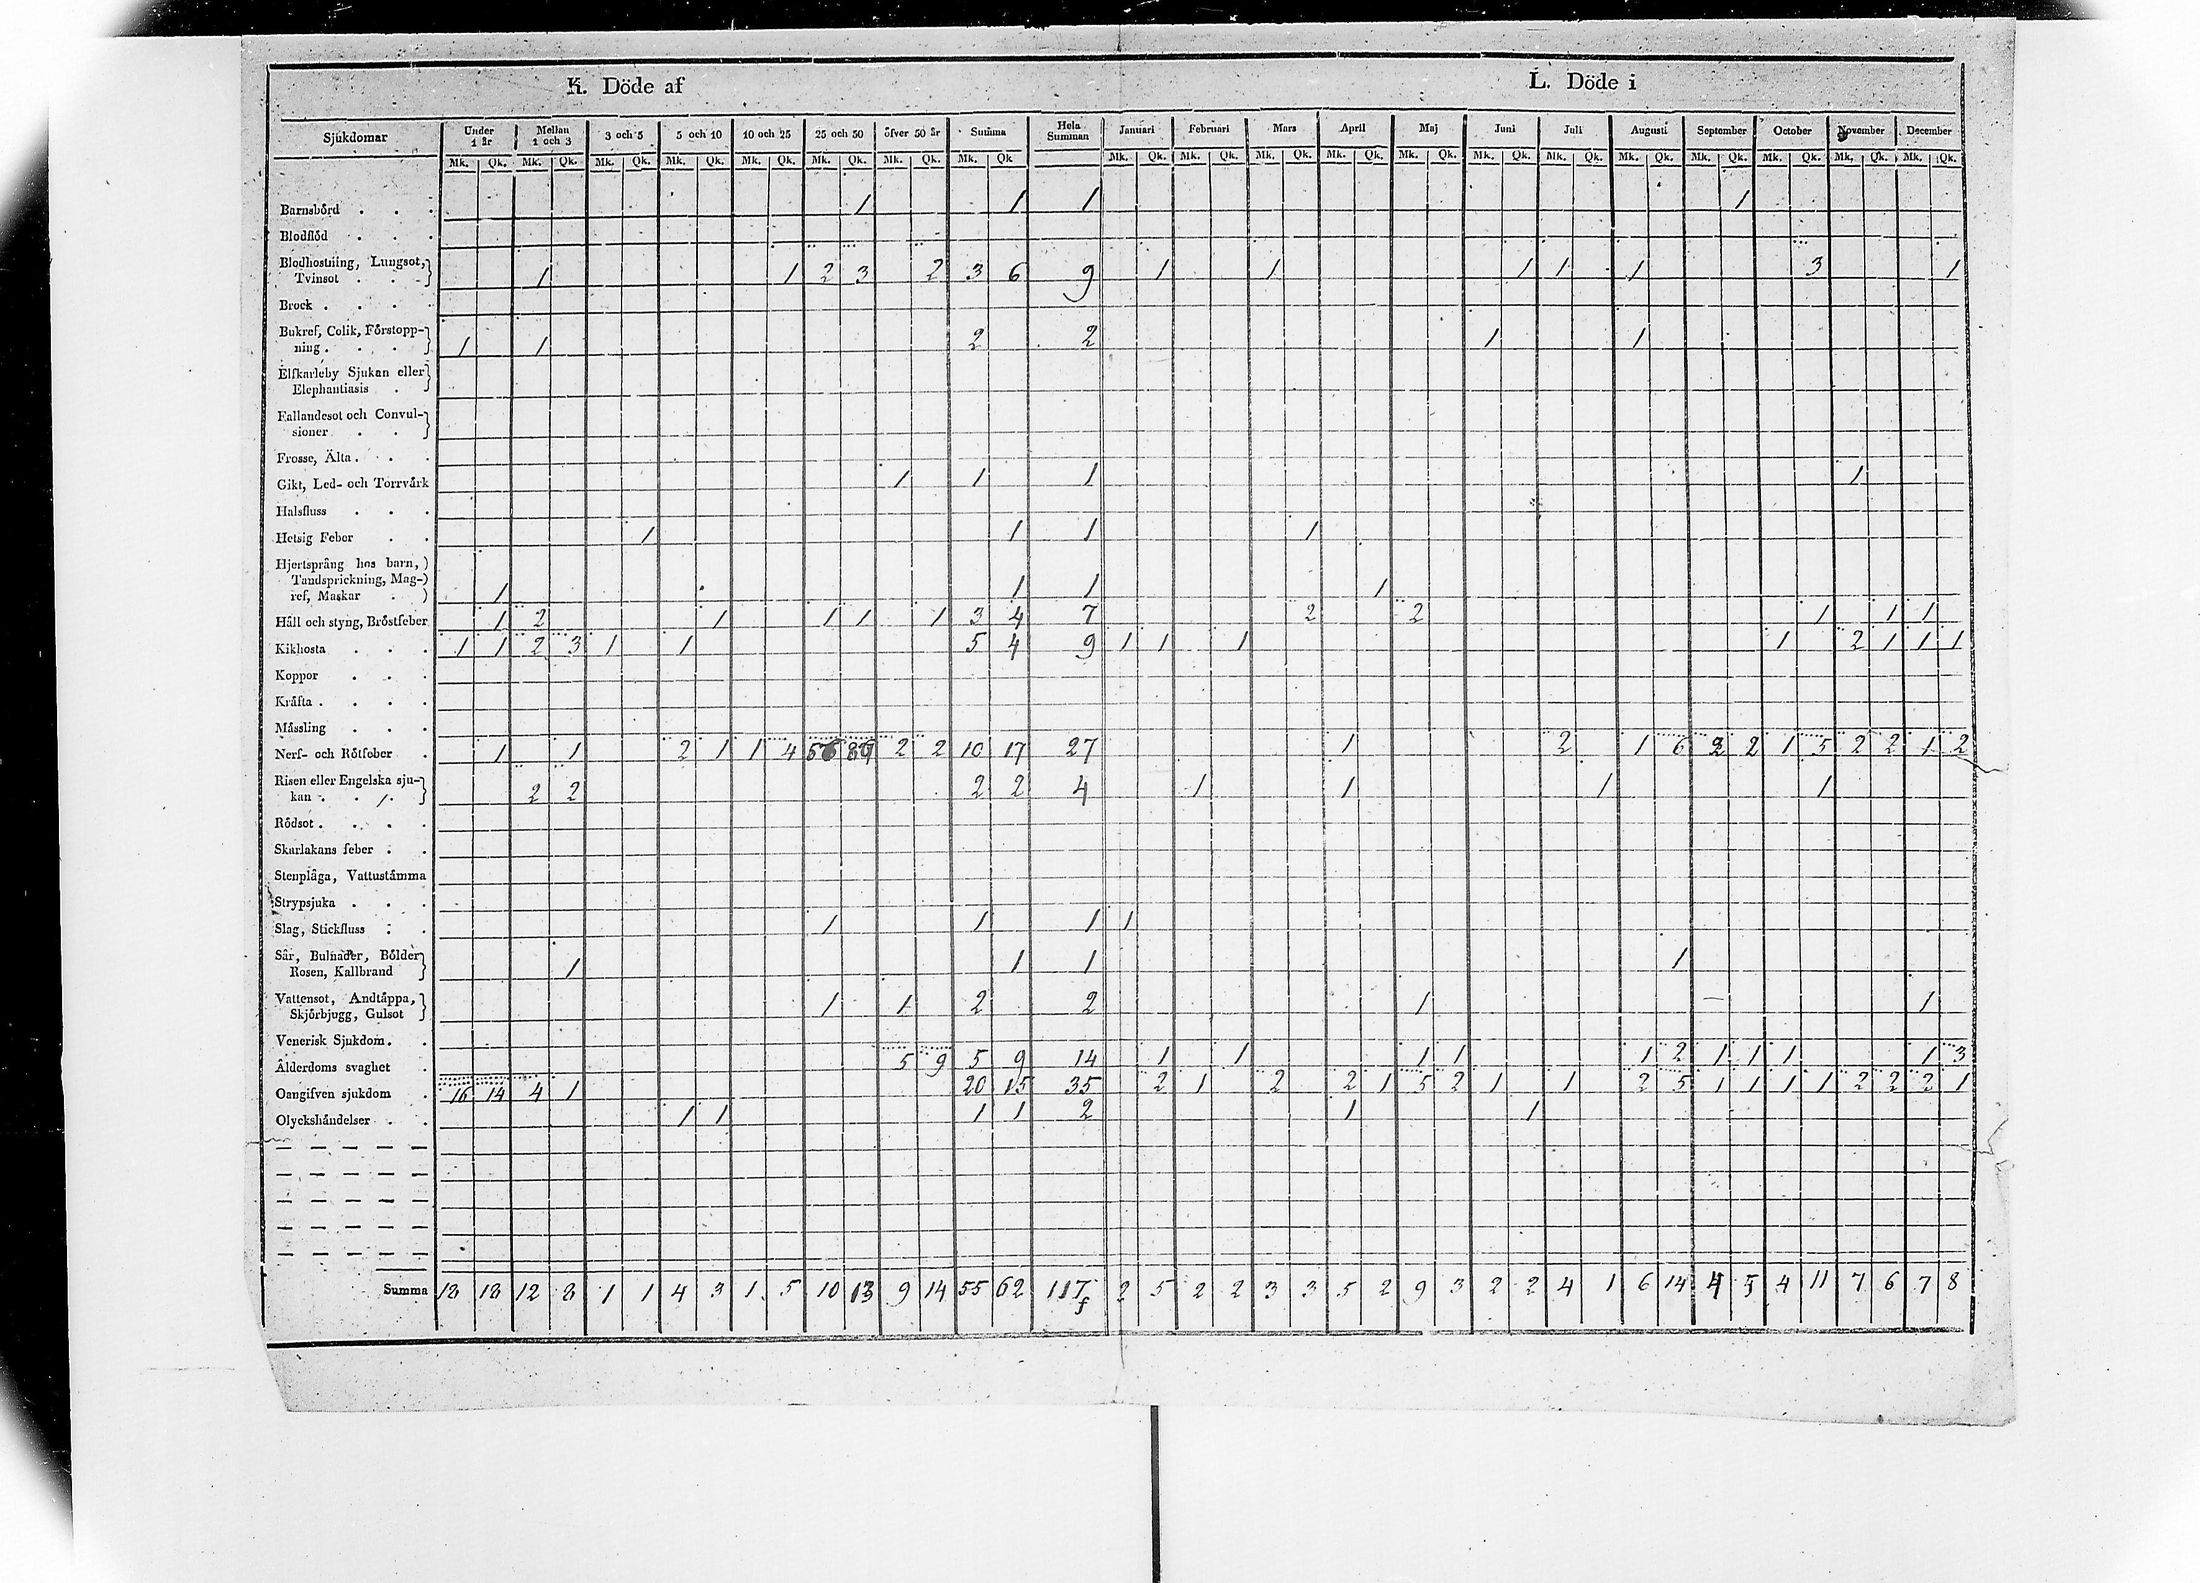 K. Döde af L. Döde i
Sjukdomar Under 1 år Mellan 1 och 3 3 och 5 5 och 10 10 och 25 25 och 50 öfver 50 år Summa Hela Summan Januari Februari Mars April Maj Juni Juli Augusti September October November December
Mk. Qk. Mk. Qk. Mk. Qk. Mk. Qk. Mk. Qk. Mk. Qk. Mk. Qk. Mk. Qk Mk. Qk. Mk. Qk. Mk. Qk. Mk. Qk. Mk. Qk. Mk. Qk. Mk. Qk. Mk. Qk. Mk. Qk. Mk. Qk. Mk. Qk. Mk. Qk.
Barnsbörd 1 1 1 1
Blodflöd
Blodhostning, Lungsot,
Tvinsot 1 1 2 3 2 3 6 9 1 1 1 1 1 3 1
Brock
Bukref, Colik, Förstopp-
ning 1 1 2 2 1 1
Elfkarleby Sjukan eller
Elephantiasis
Fallandesot och Convul-
sioner
Frosse, Älta
Gikt, Led- och Torrvärk 1 1 1 1
Halsfluss
Hetsig Feber 1 1 1 1
Hjertsprång hos barn,
Tandsprickning, Mag-
ref, Maskar 1 1 1 1
Håll och styng, Bröstfeber 1 2 1 1 1 1 3 4 7 2 2 1 1 1
Kikhosta 1 1 2 3 1 1 5 4 9 1 1 1 1 2 1 1 1
Koppor
Kräfta
Mässling
Nerf- och Rötfeber 1 1 2 1 1 4 2 2 10 17 27 1 2 1 6 2 2 1 5 2 2 1 2
Risen eller Engelska sju-
kan 2 2 2 2 4 1 1 1 1
Rödsot
Skarlakans feber
Stenplåga, Vattustämma
Strypsjuka
Slag, Stickfluss 1 1 1 1
Sår, Bulnader, Bölder
Rosen, Kallbrand 1 1 1 1
Vattensot, Andtäppa,
Skjörbjugg, Gulsot 1 1 2 2 1 1
Venerisk Sjukdom
Ålderdoms svaghet 5 9 5 9 14 1 1 1 1 1 2 1 1 1 1 3
Oangifven sjukdom 16 14 4 1 20 15 35 2 1 2 2 1 5 2 1 1 2 5 1 1 1 1 2 2 2 1
Olyckshändelser 1 1 1 1 2 1 1
Summa 18 18 12 8 1 1 4 3 1 5 10 13 9 14 55 62 117 2 5 2 2 3 3 5 2 9 3 2 2 4 1 6 14 4 5 4 11 7 6 7 8